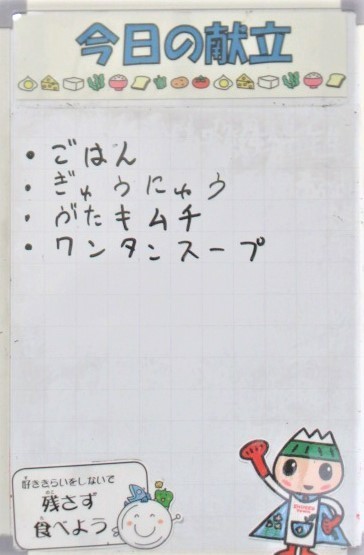 今日の献立
・ごはん
・ぎゅうにゅう
・ぶたキムチ
・ワンタンスープ
好ききらいをしないで
残さず
食べよう